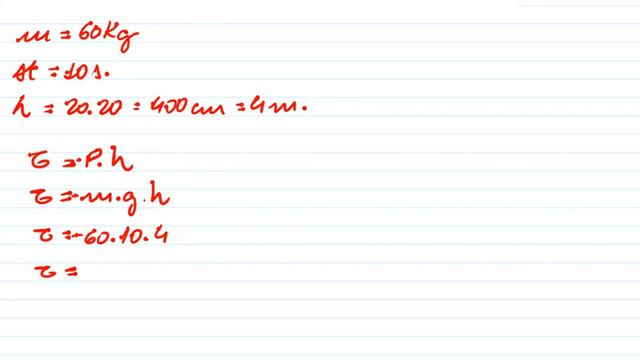 m = 60Kg
Δt = 10s.
h = 20.20 = 400cm = 4m.
τ = -P.h
τ = -m.g.h
τ = -60.10.4
τ =